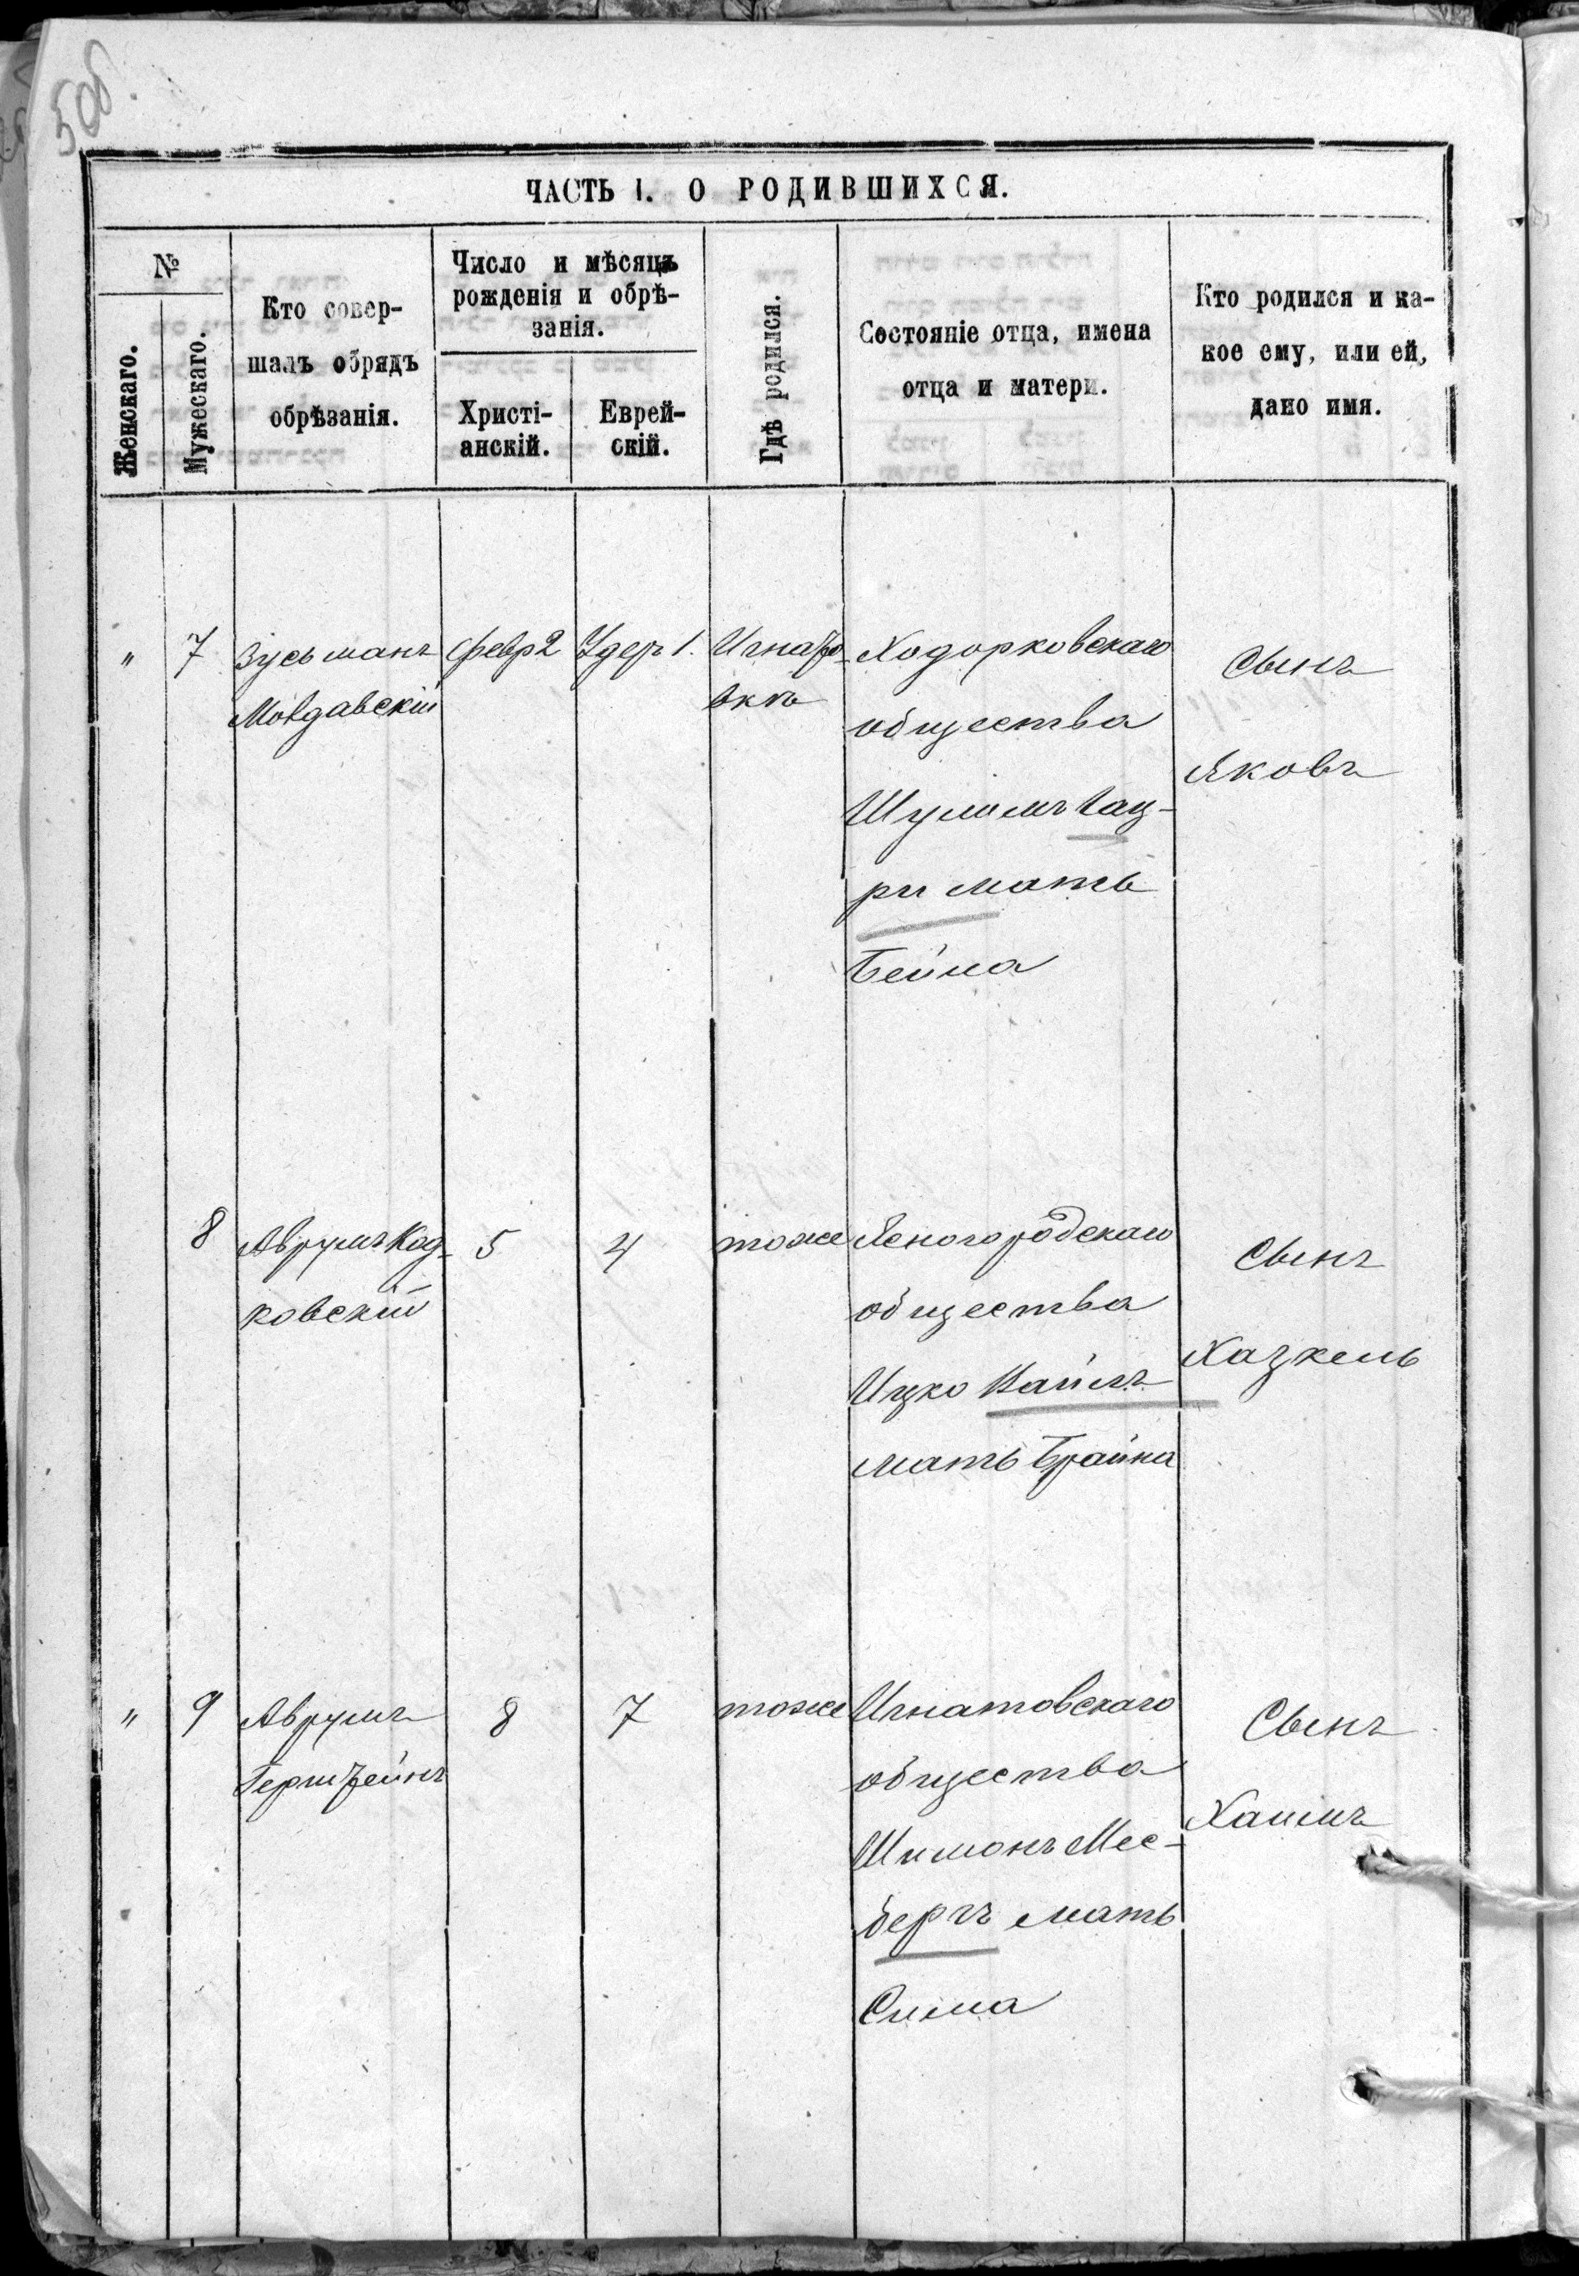 ЧАСТЬ I. О РОДИВШИХСЯ.
№
Женскаго.
Мужескаго.
Кто совер-
шалъ обрядъ
обрѣзанія.
Число и мѣсяцъ
рожденія и обрѣ-
занія.
Христі-
анскій.
Еврей-
скій.
Гдѣ родился.
Состояніе отца, имена
отца и матери.
Кто родился и ка-
кое ему, или ей,
дано имя.
" 7
Зусьманъ
Мовдавскій
Февр 2
Удеръ 1.
Игнато-
вкѣ
Ходорковскаго
общества
Шулимъ
ри мать
Бейла
Сынъ
Яковъ
8
Аврумъ Код-
ковскій
5
4
тоже
Ясногородскаго
общества
Ицко Вайль
мать Брайна
Сынъ
Хазкель
" 9
Аврумъ
Герштейнъ
8
7
тоже
Игнатовскаго
общества
Шимонъ Мес-
бергъ мать
Сима
Сынъ
Хаимъ